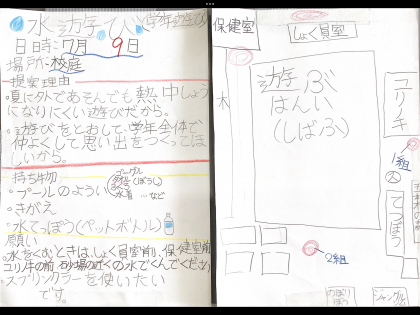 水遊び(学年遊び)
日 日時:7月9日
場所:校庭
提案理由
・夏に外であそんでも熱中しょう
になりにくい遊びだから。
・遊びをとおして、学年全体で
仲よくして思い出をつくってほ
しいから。
持ち物
・プールのようい
ゴーグル
(ぼうし)
水着 …など
・きがえ
・水てっぽう(ペットボトル)
願い
・水をくむときは、しょく員室前、保健室前
ユリノキの前、砂場の近くの水でくんでください
・スプリンクラーを使いたい
です。
保健室
しょく員室
木
遊ぶ
はんい
(しばふ)
ユリノキ
1組
てつぼう
2組
のぼり
ぼう
ジャングル